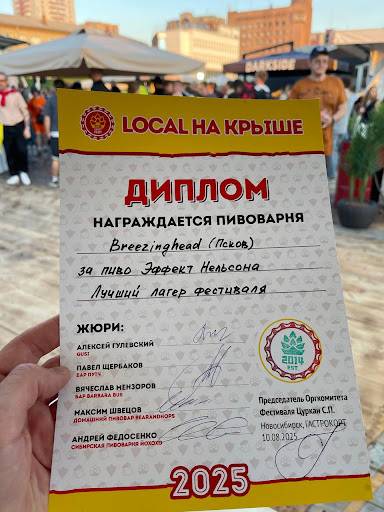 DARKSIDE
LOCAL НА КРЫШЕ
ДИПЛОМ
НАГРАЖДАЕТСЯ ПИВОВАРНЯ
Breezinghead (Псков)
за пиво Эффект Нельсона
Лучший лагер фестиваля
ЖЮРИ:
АЛЕКСЕЙ ГУЛЕВСКИЙ
GUSI
ПАВЕЛ ЩЕРБАКОВ
БАР ПУТЧ
ВЯЧЕСЛАВ МЕНЗОРОВ
БАР BARBARA BUB
МАКСИМ ШВЕЦОВ
ДОМАШНИЙ ПИВОВАР BEARANDHOPS
АНДРЕЙ ФЕДОСЕНКО
СИБИРСКАЯ ПИВОВАРНЯ ЙОХОХО
2014
EST
Председатель Оргкомитета
Фестиваля Цуркан С.П.
Новосибирск, ГАСТРОКОРТ
10.08.2025
2025